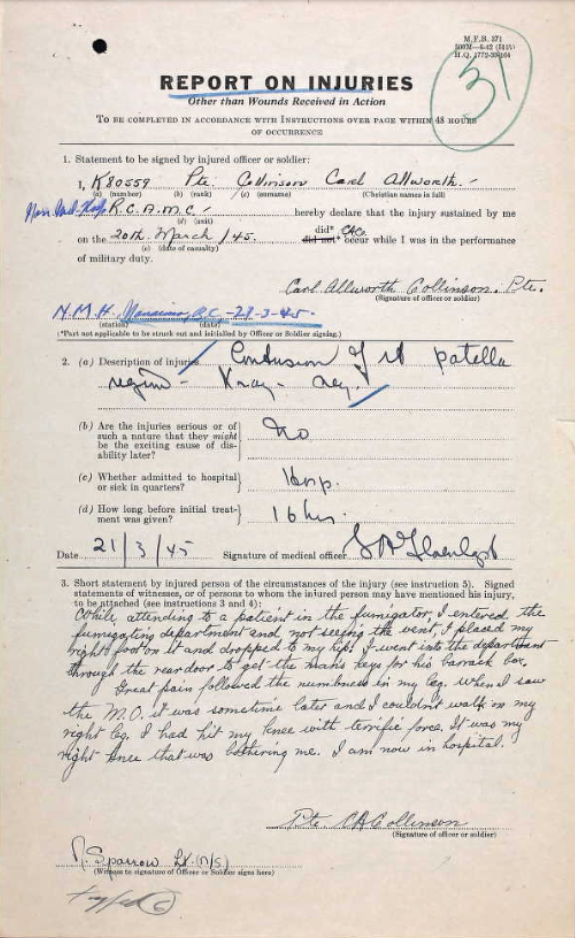 M.F.B. 371
H.Q. 1772-39-
31
REPORT ON INJURIES
Other than Wounds Received in Action
TO BE COMPLETED IN ACCORDANCE WITH INSTRUCTIONS OVER PAGE WITHIN 48 HOURS
OF OCCURRENCE
1. Statement to be signed by injured officer or soldier:
I, K80559 Pte. Collinson Carl Allworth.-
(a) (number) (b) (rank) (c) (surname) (Christian names in full)
R.C.A.M.C. hereby declare that the injury sustained by me
(d) (unit)
on the 20th. March /45. did* did not* CAC. occur while I was in the performance
(e) (date of casualty)
of military duty.
Carl Allworth Collinson. Pte.
(Signature of officer or soldier)
N.M.H. Nanaimo, B.C. -23-3-45-
(station) (date)
(*Part not applicable to be struck out and initialled by Officer or Soldier signing.)
2. (a) Description of injuries Contusion of rt patella
region - Xray -
(b) Are the injuries serious or of
such a nature that they might
be the exciting cause of dis-
ability later? No
(c) Whether admitted to hospital
or sick in quarters? Hosp.
(d) How long before initial treat-
ment was given? 16 hrs.
Date 21/3/45 Signature of medical officer
3. Short statement by injured person of the circumstances of the injury (see instruction 5). Signed
statements of witnesses, or of persons to whom the injured person may have mentioned his injury,
to be attached (see instructions 3 and 4):
While, attending to a patient in the fumigator, I entered the
fumigating department and not seeing the vent, I placed my
right foot on it and dropped to my hip. I went into the department
through the rear door to get the man's keys for his barrack box.
Great pain followed the numbness in my leg. When I saw
the M.O. it was sometime later and I couldn't walk on my
right leg. I had hit my knee with terrific force. It was my
right knee that was bothering me. I am now in hospital.
Pte. CACollinson
(Signature of officer or soldier)
R. Sparrow Lt. (N/S)
(Witness to signature of Officer or Soldier signs here)